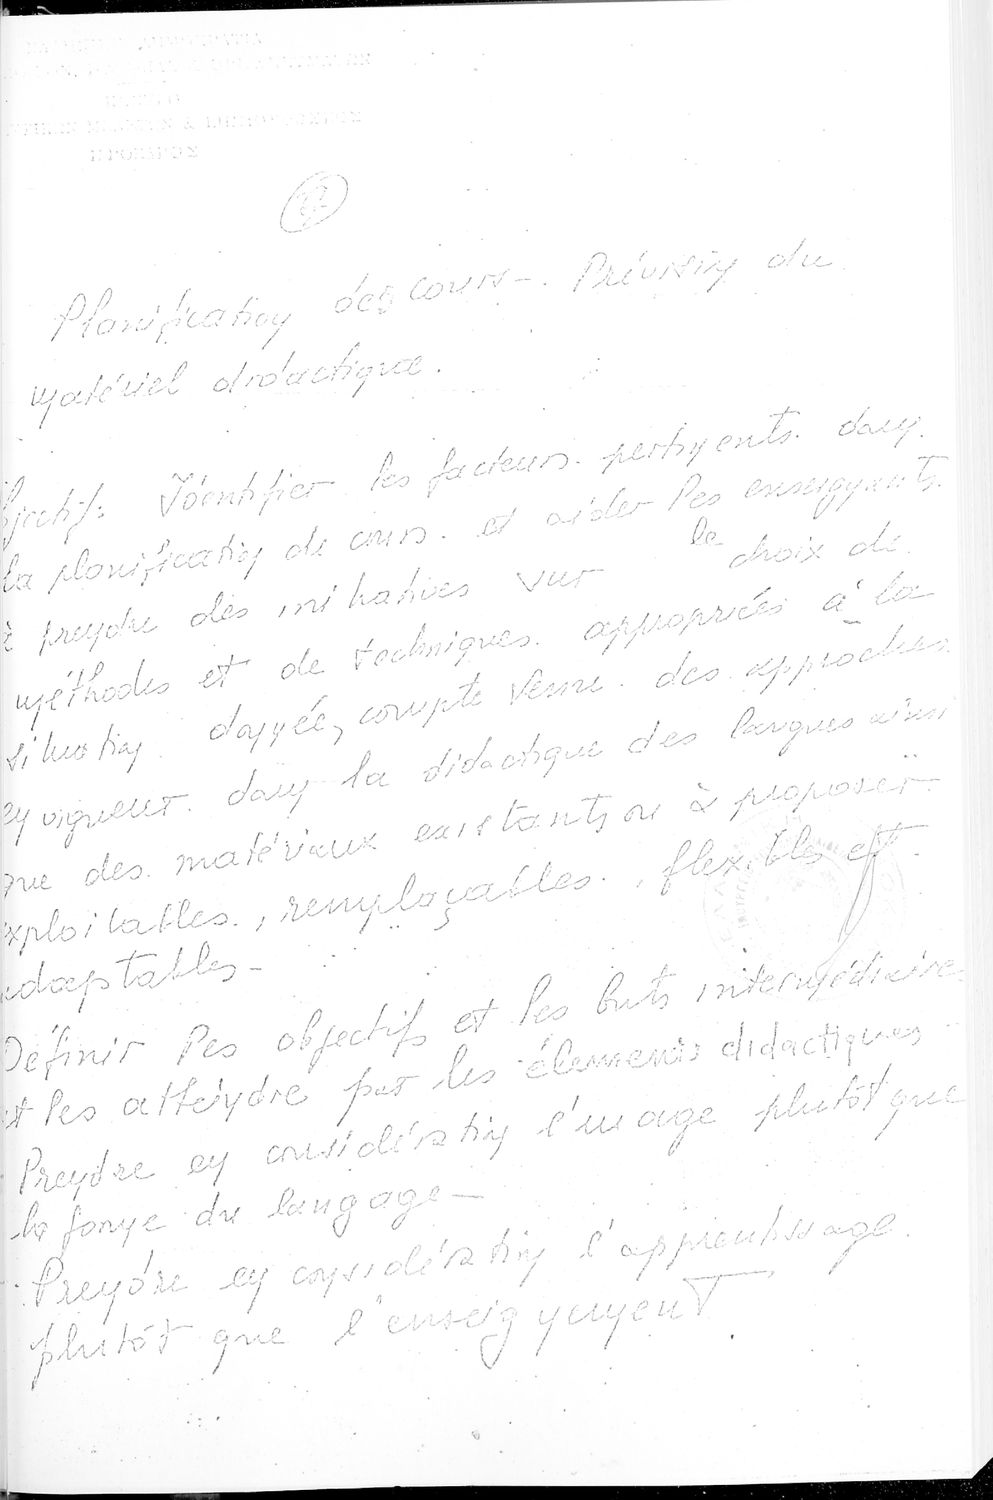 Planification des cours - Prévision du
matériel didactique.
Identifier les facteurs pertinents dans
la planification de cours et aider les enseignants
à prendre des initiatives sur le choix de
méthodes et de techniques appropriées à la
situation donnée, compte tenu des approches
en vigueur dans la didactique des langues ainsi
que des matériaux existants ou à proposer
exploitables, remplaçables, flexibles et
adaptables -
Définir les objectifs et les buts intermédiaires
et les atteindre par les élements didactiques
Prendre en considération l'usage plutôt que
la forme du langage -
Prendre en considération l'apprentissage
plutôt que l'enseignement